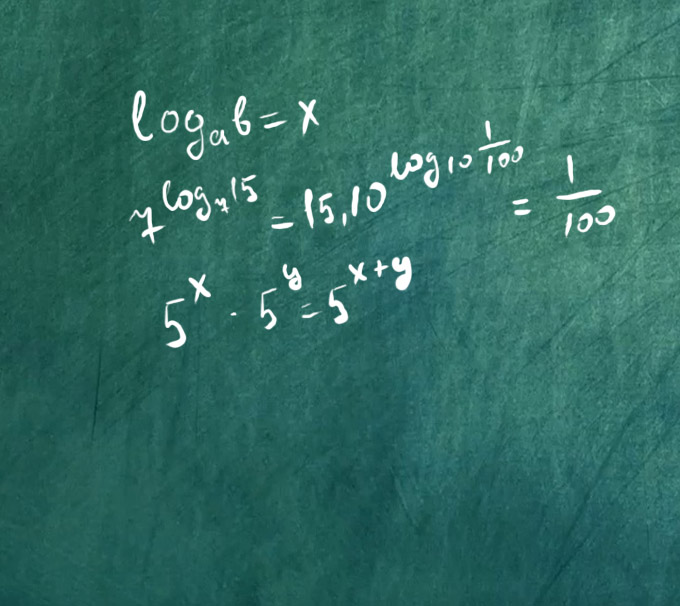 logₐb = x
7^(log₇15) = 15, 10^(log₁₀ 1/100) = 1/100
5^x · 5^y = 5^(x+y)